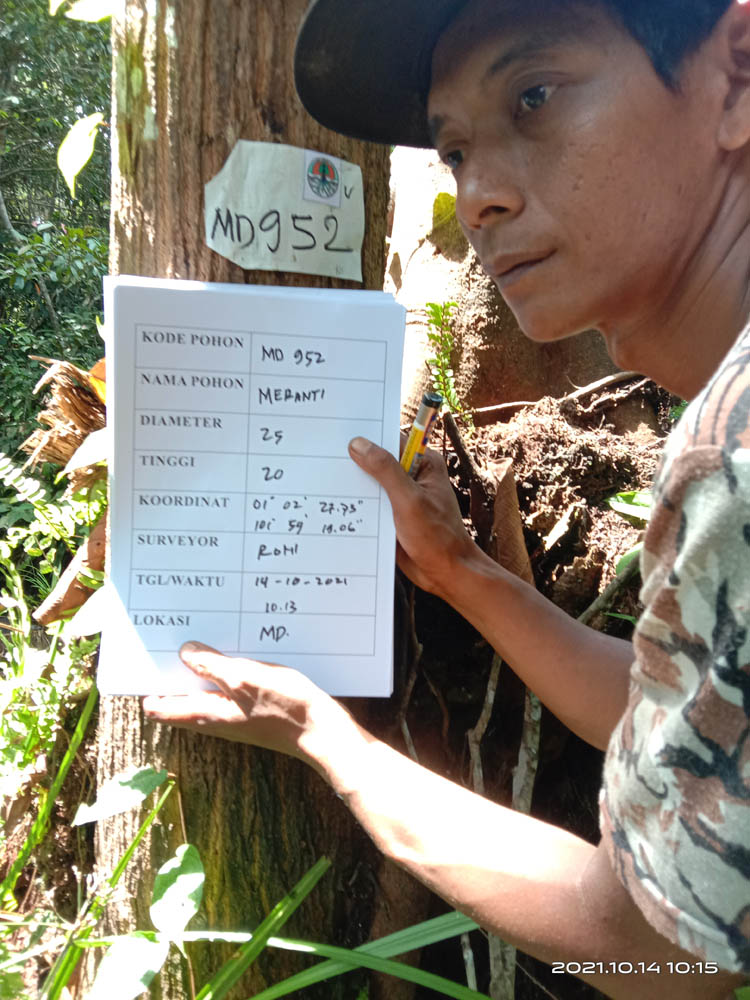 MD952 V
KODE POHON MD 952
NAMA POHON MERANTI
DIAMETER 25
TINGGI 20
KOORDINAT 01° 02' 27.73"
101° 59' 19.06"
SURVEYOR ROMI
TGL/WAKTU 14-10-2021
10.13
LOKASI MD.
2021.10.14 10:15